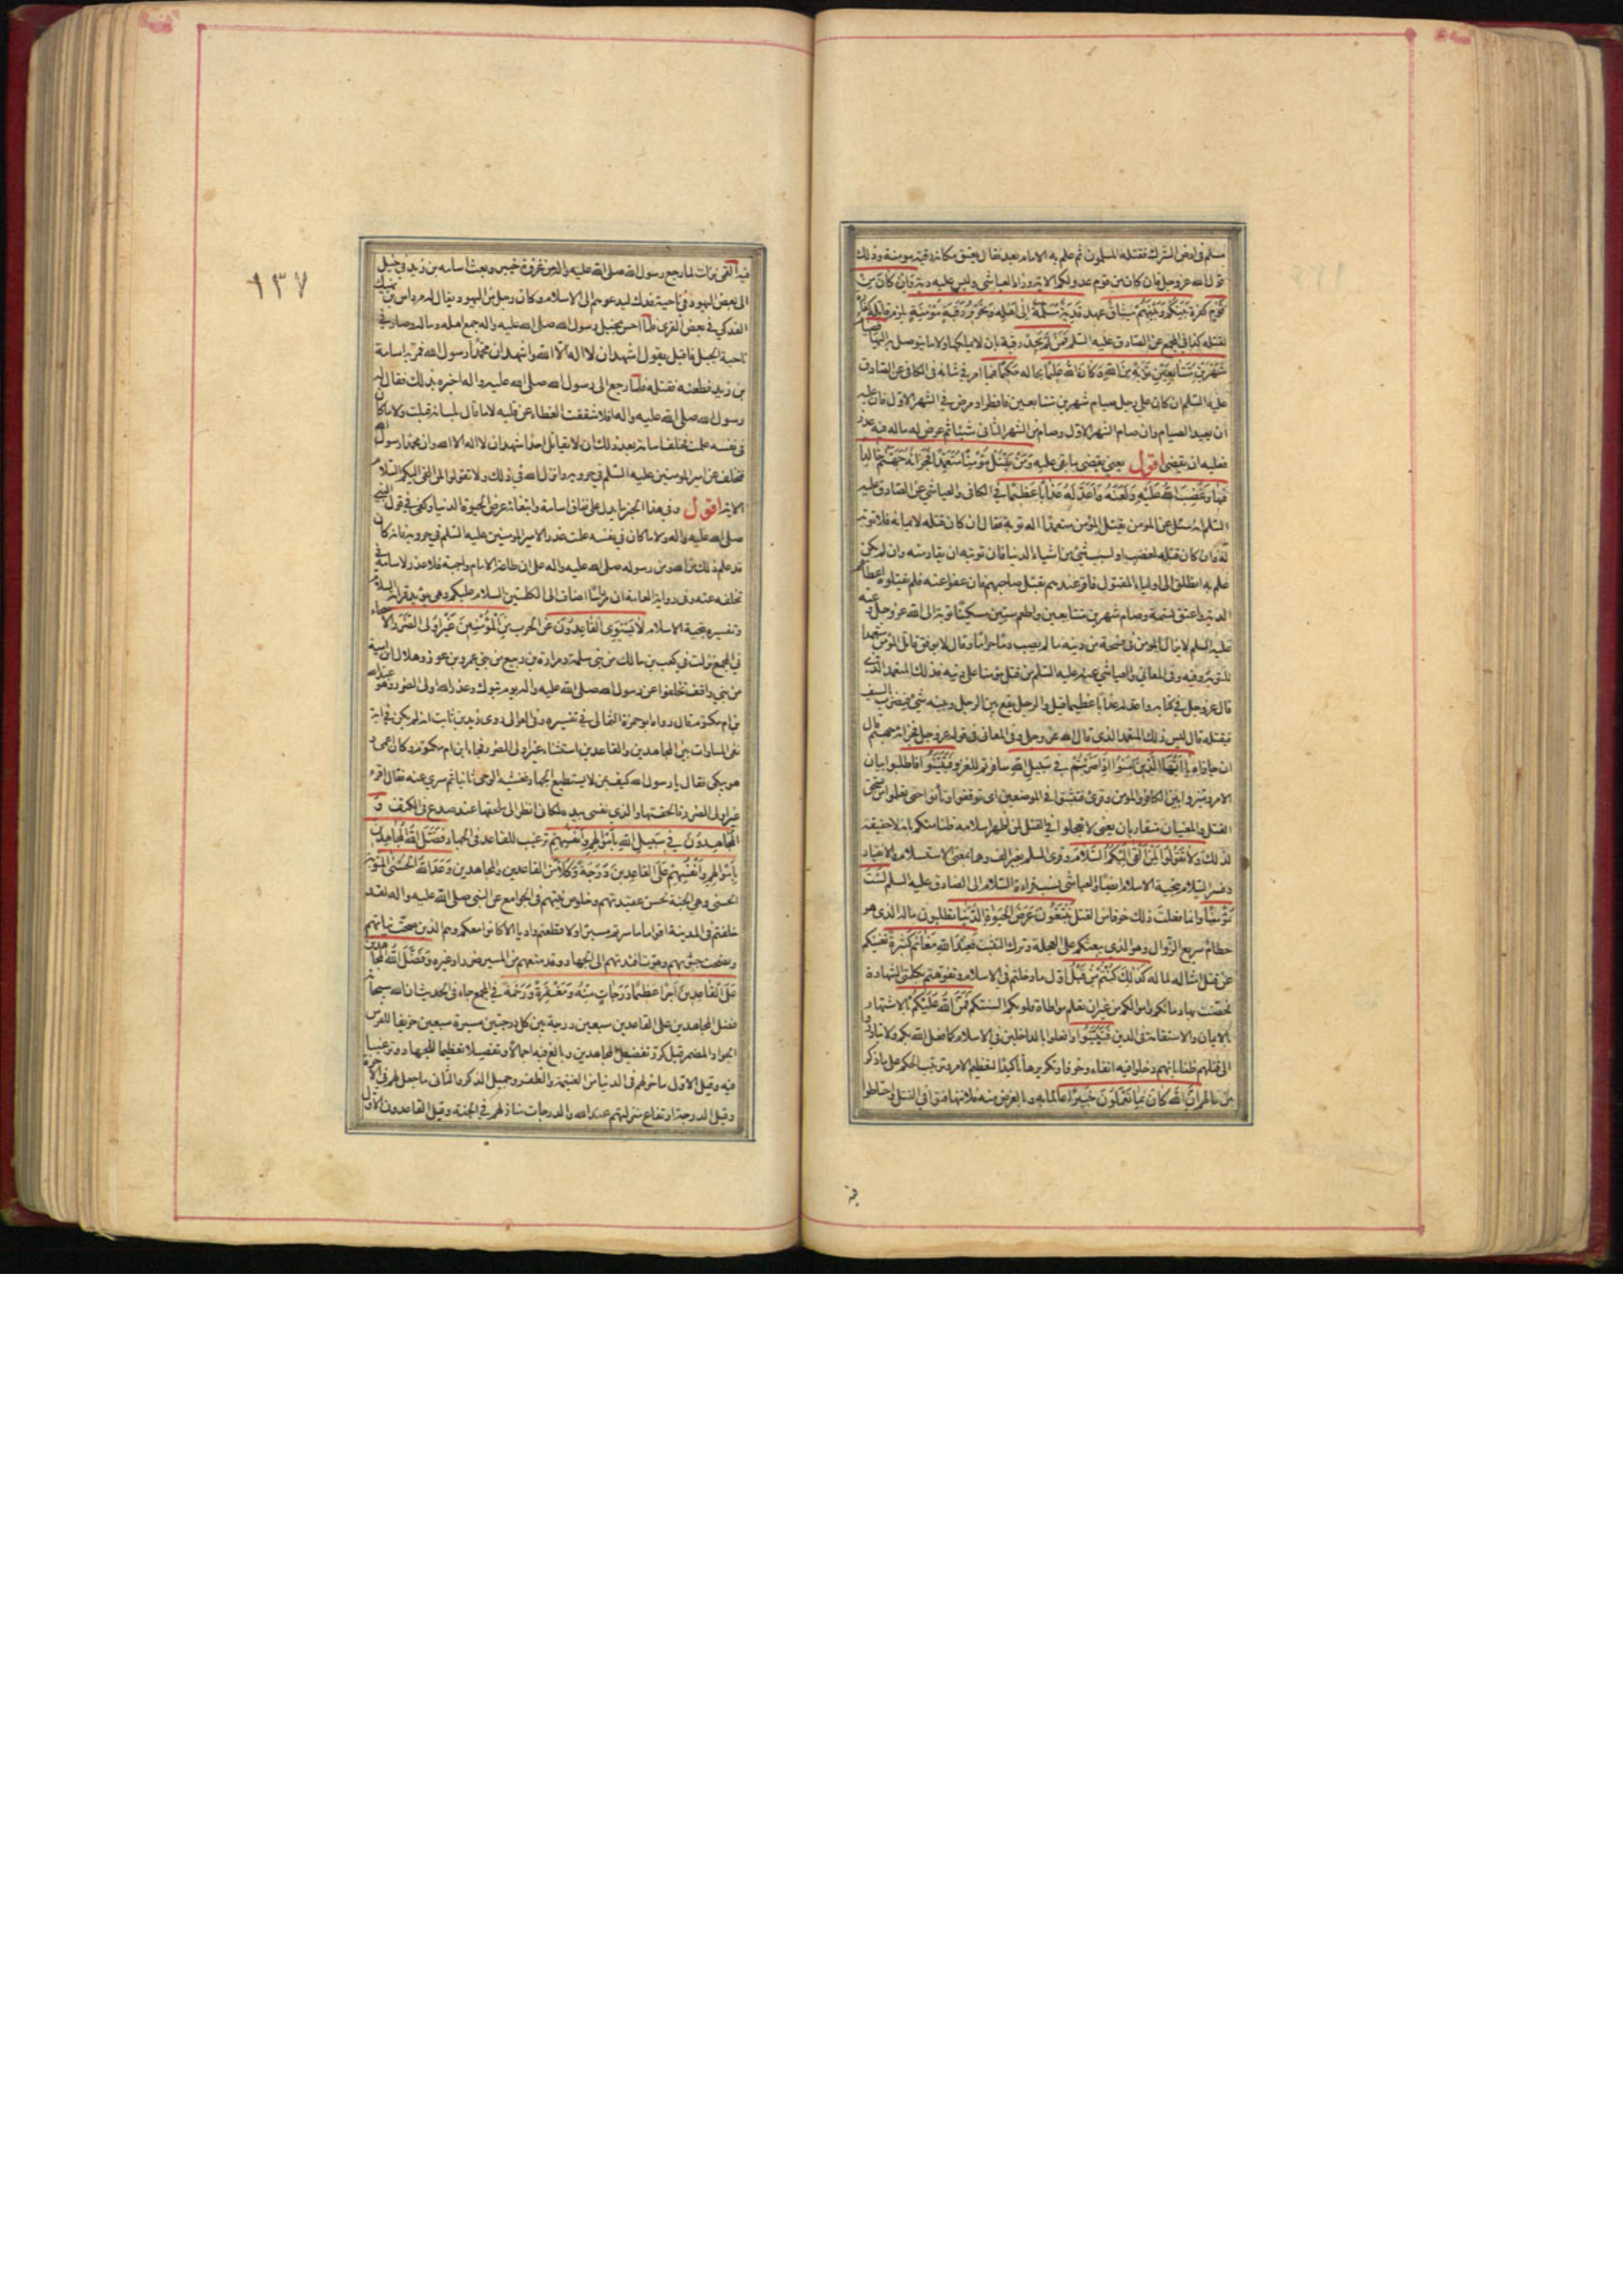 مسلم في ارض الشرك فقتله المسلمون ثم علم به الامام بعد فقال يعتق مكانه رقبة مؤمنة وذلك
قول الله عز وجل فان كان من قوم عدو لكم الاية وزاد العياشي وليس عليه دية وَإِن كَانَ مِنْ
قَوْمٍ كفرة بَيْنَكُمْ وَبَيْنَهُمْ مِيثَاقٌ عهد فَدِيَةٌ مُسَلَّمَةٌ إِلَى أَهْلِهِ وَتَحْرِيرُ رَقَبَةٍ مُؤْمِنَةٍ يلزم قاتله كفارة
لقتله كذا في المجمع عن الصادق عليه السلم فَمَنْ لَمْ يَجِدْ رقبة بان لا يملكها ولا ما يتوصل به اليها فَصِيَامُ
شَهْرَيْنِ مُتَتَابِعَيْنِ تَوْبَةً مِنَ اللهِ وَكَانَ اللهُ عَلِيمًا بحاله حَكِيمًا فيما امر في شانه في الكافي عن الصادق
عليه السلم ان كان على رجل صيام شهرين متتابعين فافطر او مرض في الشهر الاول فان عليه
ان يعيد الصيام وان صام الشهر الاول وصام من الشهر الثاني شيئا ثم عرض له ما له فيه عذر
فعليه ان يقضي اقول يعني يقضي ما بقي عليه وَمَنْ يَقْتُلْ مُؤْمِنًا مُتَعَمِّدًا فَجَزَاؤُهُ جَهَنَّمُ خَالِدًا
فِيهَا وَغَضِبَ اللهُ عَلَيْهِ وَلَعَنَهُ وَأَعَدَّ لَهُ عَذَابًا عَظِيمًا في الكافي والعياشي عن الصادق عليه
السلم انه سئل عن المؤمن يقتل المؤمن متعمدا اله توبة فقال ان كان قتله لايمانه فلا توبة
له وان كان قتله لغضب او لسبب شيء من اشياء الدنيا فان توبته ان يقاد منه وان لم يكن
علم به انطلق الى اولياء المقتول فاقر عندهم بقتل صاحبهم فان عفوا عنه فلم يقتلوه اعطاهم
الدية واعتق نسمة وصام شهرين متتابعين واطعم ستين مسكينا توبة الى الله عز وجل وعنه
عليه السلم لا يزال المؤمن في فسحة من دينه ما لم يصب دما حراما وقال لا يوفق قاتل المؤمن متعمدا
للتوبة وفيه وفي المعاني والعياشي عنه عليه السلم من قتل مؤمنا على دينه فذلك المتعمد الذي
قال عز وجل في كتابه واعد له عذابا عظيما قيل والرجل يقع بين الرجل وبينه شيء فيضربه بالسيف
فيقتله قال ليس ذلك المتعمد الذي قال الله عز وجل وفي المعاني في قوله عز وجل فجزاؤه جهنم قال
ان جازاه يَا أَيُّهَا الَّذِينَ آمَنُوا إِذَا ضَرَبْتُمْ فِي سَبِيلِ اللهِ سافرتم للغزو فَتَبَيَّنُوا فاطلبوا بيان
الامر وميزوا بين الكافر والمؤمن وقرئ فتثبتوا في الموضعين اي توقفوا وتأنوا حتى تعلموا من يستحق
القتل والمعنيان متقاربان يعني لا تعجلوا في القتل لمن اظهر اسلامه ظنا منكم بانه لا حقيقة
لذلك وَلَا تَقُولُوا لِمَنْ أَلْقَى إِلَيْكُمُ السَّلَامَ وقرئ السلم بغير الف وهما بمعنى الاستسلام والانقياد
وفسر السلام بتحية الاسلام ايضا والعياشي نسب قراءة السلام الى الصادق عليه السلم لَسْتَ
مُؤْمِنًا وانما فعلت ذلك خوفا من القتل تَبْتَغُونَ عَرَضَ الْحَيَوةِ الدُّنْيَا تطلبون ماله الذي هو
حطام سريع الزوال وهو الذي يبعثكم على العجلة وترك التثبت فَعِنْدَ اللهِ مَغَانِمُ كَثِيرَةٌ تغنيكم
عن قتل امثاله لماله كَذَلِكَ كُنْتُمْ مِنْ قَبْلُ اول ما دخلتم في الاسلام وتفوهتم بكلمتي الشهادة
فحصنت بها دمائكم واموالكم من غير ان يعلم مواطاة قلوبكم السنتكم فَمَنَّ اللهُ عَلَيْكُمْ بالاشتهار
بالايمان والاستقامة في الدين فَتَبَيَّنُوا وافعلوا بالداخلين في الاسلام كما فعل الله بكم ولا تبادروا
الى قتلهم ظنا بانهم دخلوا فيه اتقاء وخوفا وتكريرها تأكيدا لتعظيم الامر وترتيب الحكم على ما ذكر
من حالهم إِنَّ اللهَ كَانَ بِمَا تَعْمَلُونَ خَبِيرًا عالما به وبالغرض منه فلا تتهافتوا في القتل واحتاطوا
فيه
١٣٧
فيه القمي نزلت لما رجع رسول الله صلى الله عليه واله من غزوة خيبر وبعث اسامة بن زيد في خيل
الى بعض اليهود في ناحية فدك ليدعوهم الى الاسلام وكان رجل من اليهود يقال له مرداس بن نهيك
الفدكي في بعض القرى فلما احس بخيل رسول الله صلى الله عليه واله جمع اهله وماله وصار في
ناحية الجبل فاقبل يقول اشهد ان لا اله الا الله واشهد ان محمدا رسول الله فمر به اسامة
بن زيد فطعنه فقتله فلما رجع الى رسول الله صلى الله عليه واله اخبره بذلك فقال له
رسول الله صلى الله عليه واله افلا شققت الغطاء عن قلبه لا ما قال بلسانه قبلت ولا ما كان
في نفسه علمت فحلف اسامة بعد ذلك ان لا يقاتل احدا شهد ان لا اله الا الله وان محمدا رسول الله
فتخلف عن امير المؤمنين عليه السلم في حروبه وانزل الله في ذلك ولا تقولوا لمن القى اليكم السلام
الاية اقول وفي هذا الخبر ما يدل على نفاق اسامة وابتغائه عرض الحيوة الدنيا وكفى في قول النبي
صلى الله عليه واله ولا ما كان في نفسه علمت عذرا لامير المؤمنين عليه السلم في حروبه فانه كان
قد علم ذلك من الله ومن رسوله صلى الله عليه واله على ان طاعة الامام واجبة فلا عذر لاسامة في
تخلفه عنه وفي رواية العامة ان مرداسا اضاف الى الكلمتين السلام عليكم وهي تؤيد قراءة السلام
وتفسيره بتحية الاسلام لَا يَسْتَوِي الْقَاعِدُونَ عن الحرب مِنَ الْمُؤْمِنِينَ غَيْرُ أُولِي الضَّرَرِ
في المجمع نزلت في كعب بن مالك من بني سلمة ومرارة بن ربيع من بني عمرو بن عوف وهلال بن امية
من بني واقف تخلفوا عن رسول الله صلى الله عليه واله يوم تبوك وعذر الله اولي الضرر وهو عبد الله
بن ام مكتوم قال رواه ابو حمزة الثمالي في تفسيره وفي العوالي روى زيد بن ثابت انه لم يكن في اية
نفي المساوات بين المجاهدين والقاعدين استثناء غير اولي الضرر فجاء ابن ام مكتوم وكان اعمى
هو يبكي فقال يا رسول الله كيف بمن لا يستطيع الجهاد فغشيه الوحي ثانيا ثم سري عنه فقال اقرء
غير اولي الضرر فالحقتها والذي نفسي بيده لكاني انظر الى ملحقها عند صدع في الكتف وَ
الْمُجَاهِدُونَ فِي سَبِيلِ اللهِ بِأَمْوَالِهِمْ وَأَنْفُسِهِمْ ترغيب للقاعد في الجهاد فَضَّلَ اللهُ الْمُجَاهِدِينَ
بِأَمْوَالِهِمْ وَأَنْفُسِهِمْ عَلَى الْقَاعِدِينَ دَرَجَةً وَكُلًّا من القاعدين والمجاهدين وَعَدَ اللهُ الْحُسْنَى المثوبة
الحسنى وهي الجنة لحسن عقيدتهم وخلوص نيتهم في الجوامع عن النبي صلى الله عليه واله لقد
خلفتم في المدينة اقواما ما سرتم مسيرا ولا قطعتم واديا الا كانوا معكم وهم الذين صحت نياتهم
ونصحت جيوبهم وهوت افئدتهم الى الجهاد وقد منعهم من المسير ضرر او غيره وَفَضَّلَ اللهُ الْمُجَاهِدِينَ
عَلَى الْقَاعِدِينَ أَجْرًا عَظِيمًا دَرَجَاتٍ مِنْهُ وَمَغْفِرَةً وَرَحْمَةً في المجمع جاء في الحديث ان الله سبحانه
فضل المجاهدين على القاعدين سبعين درجة بين كل درجتين مسيرة سبعين خريفا للفرس
الجواد المضمر قيل كرر تفضيل المجاهدين وبالغ فيه اجمالا وتفصيلا تعظيما للجهاد وترغيبا
فيه وقيل الاول ما خولهم في الدنيا من الغنيمة والظفر وجميل الذكر والثاني ما جعل لهم في الاخرة
وقيل الدرجة ارتفاع منزلتهم عند الله والدرجات منازلهم في الجنة وقيل القاعدون الاول